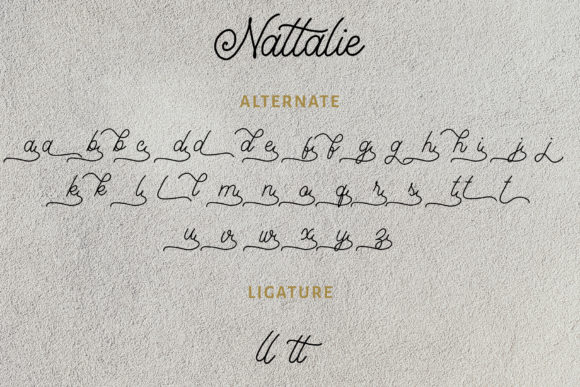 Nattalie
ALTERNATE
a a b b c d d d e f f g g h h i j j
k k l l l m n o q r s t t t
u v w x y z
LIGATURE
ll tt